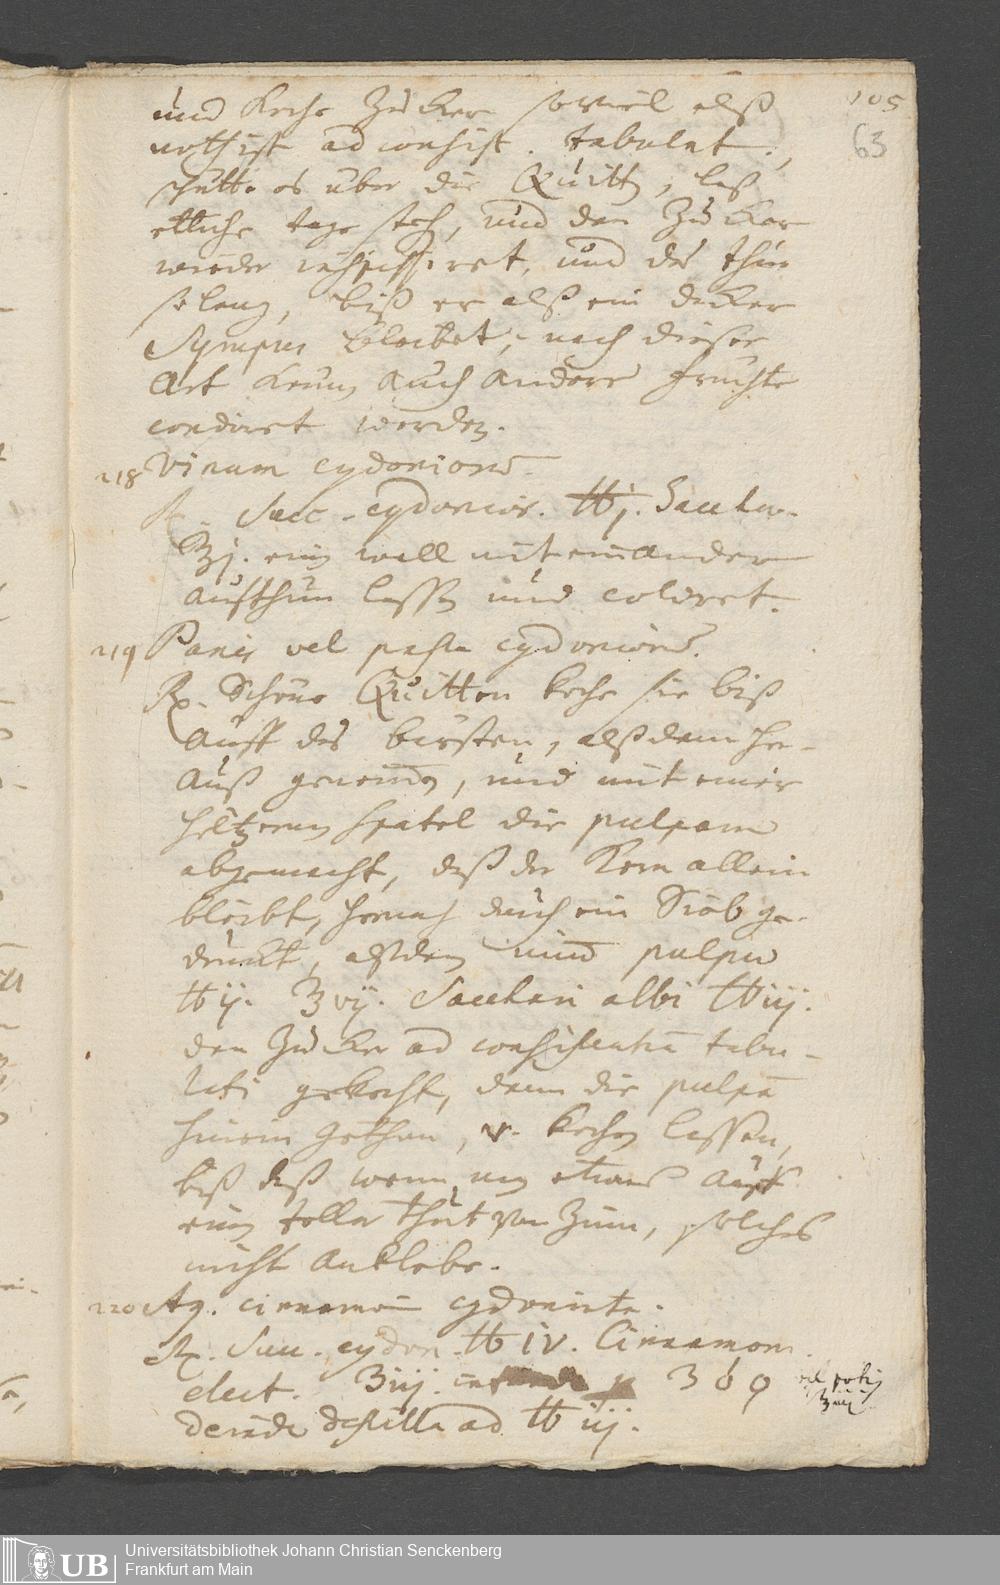 105
63
und koche Zucker soviel alß
noth ist ad consist. tabulat.,
schütte es über die Quitt, laß
etliche tage steh, und den Zucker
wieder inspissiret, und das thue
so lang, biß er alß ein dicker
Syrupus bleibet, nach dieser
Art kann auch andere früchte
condiret werden.
218 Vinum cydonior.
℞. Succ. cydonior. ℔j. Sacchar.
℥j. ein wall mit einander
aufthun lassen und coliret.
219 Panis vel pasta cydonior.
℞. Schöne Quitten koche sie biß
auff das bürsten, alßdann her-
auß genom̄en, und mit einer
höltzern spatel die pulpam
abgemacht, daß der Kern allein
bleibt, hernach durch ein Sieb ge-
druckt, alßden nim̄ pulpae
℔ij. ℥vij. Sacchari albi ℔iij.
den Zucker ad consistentiā tabu-
lati gekocht, dann die pulpā
hinein gethan, v. kochen lassen,
biß daß wenn man etwas auff
ein teller thut von Zinn, solches
nicht anklebe.
220 Aq. cinnamomi cydoniata.
℞. Succ. cydon. ℔ iv. Cinnamom.
elect. ℥iij. infunde p 3 d 9 vel potius
℥iiij
deinde destilla ad ℔ iij.
Universitätsbibliothek Johann Christian Senckenberg
UB Frankfurt am Main